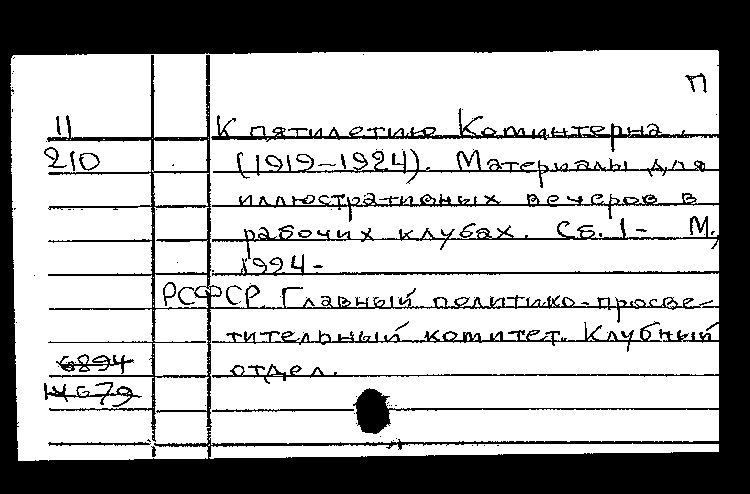 П
11
К пятилетию Коминтерна.
210
(1919-1924). Материалы для
иллюстративных вечеров в
рабочих клубах. Сб. 1- М.,
1924-
РСФСР. Главный политико-просве-
тительный комитет. Клубный
6894
отдел.
14679